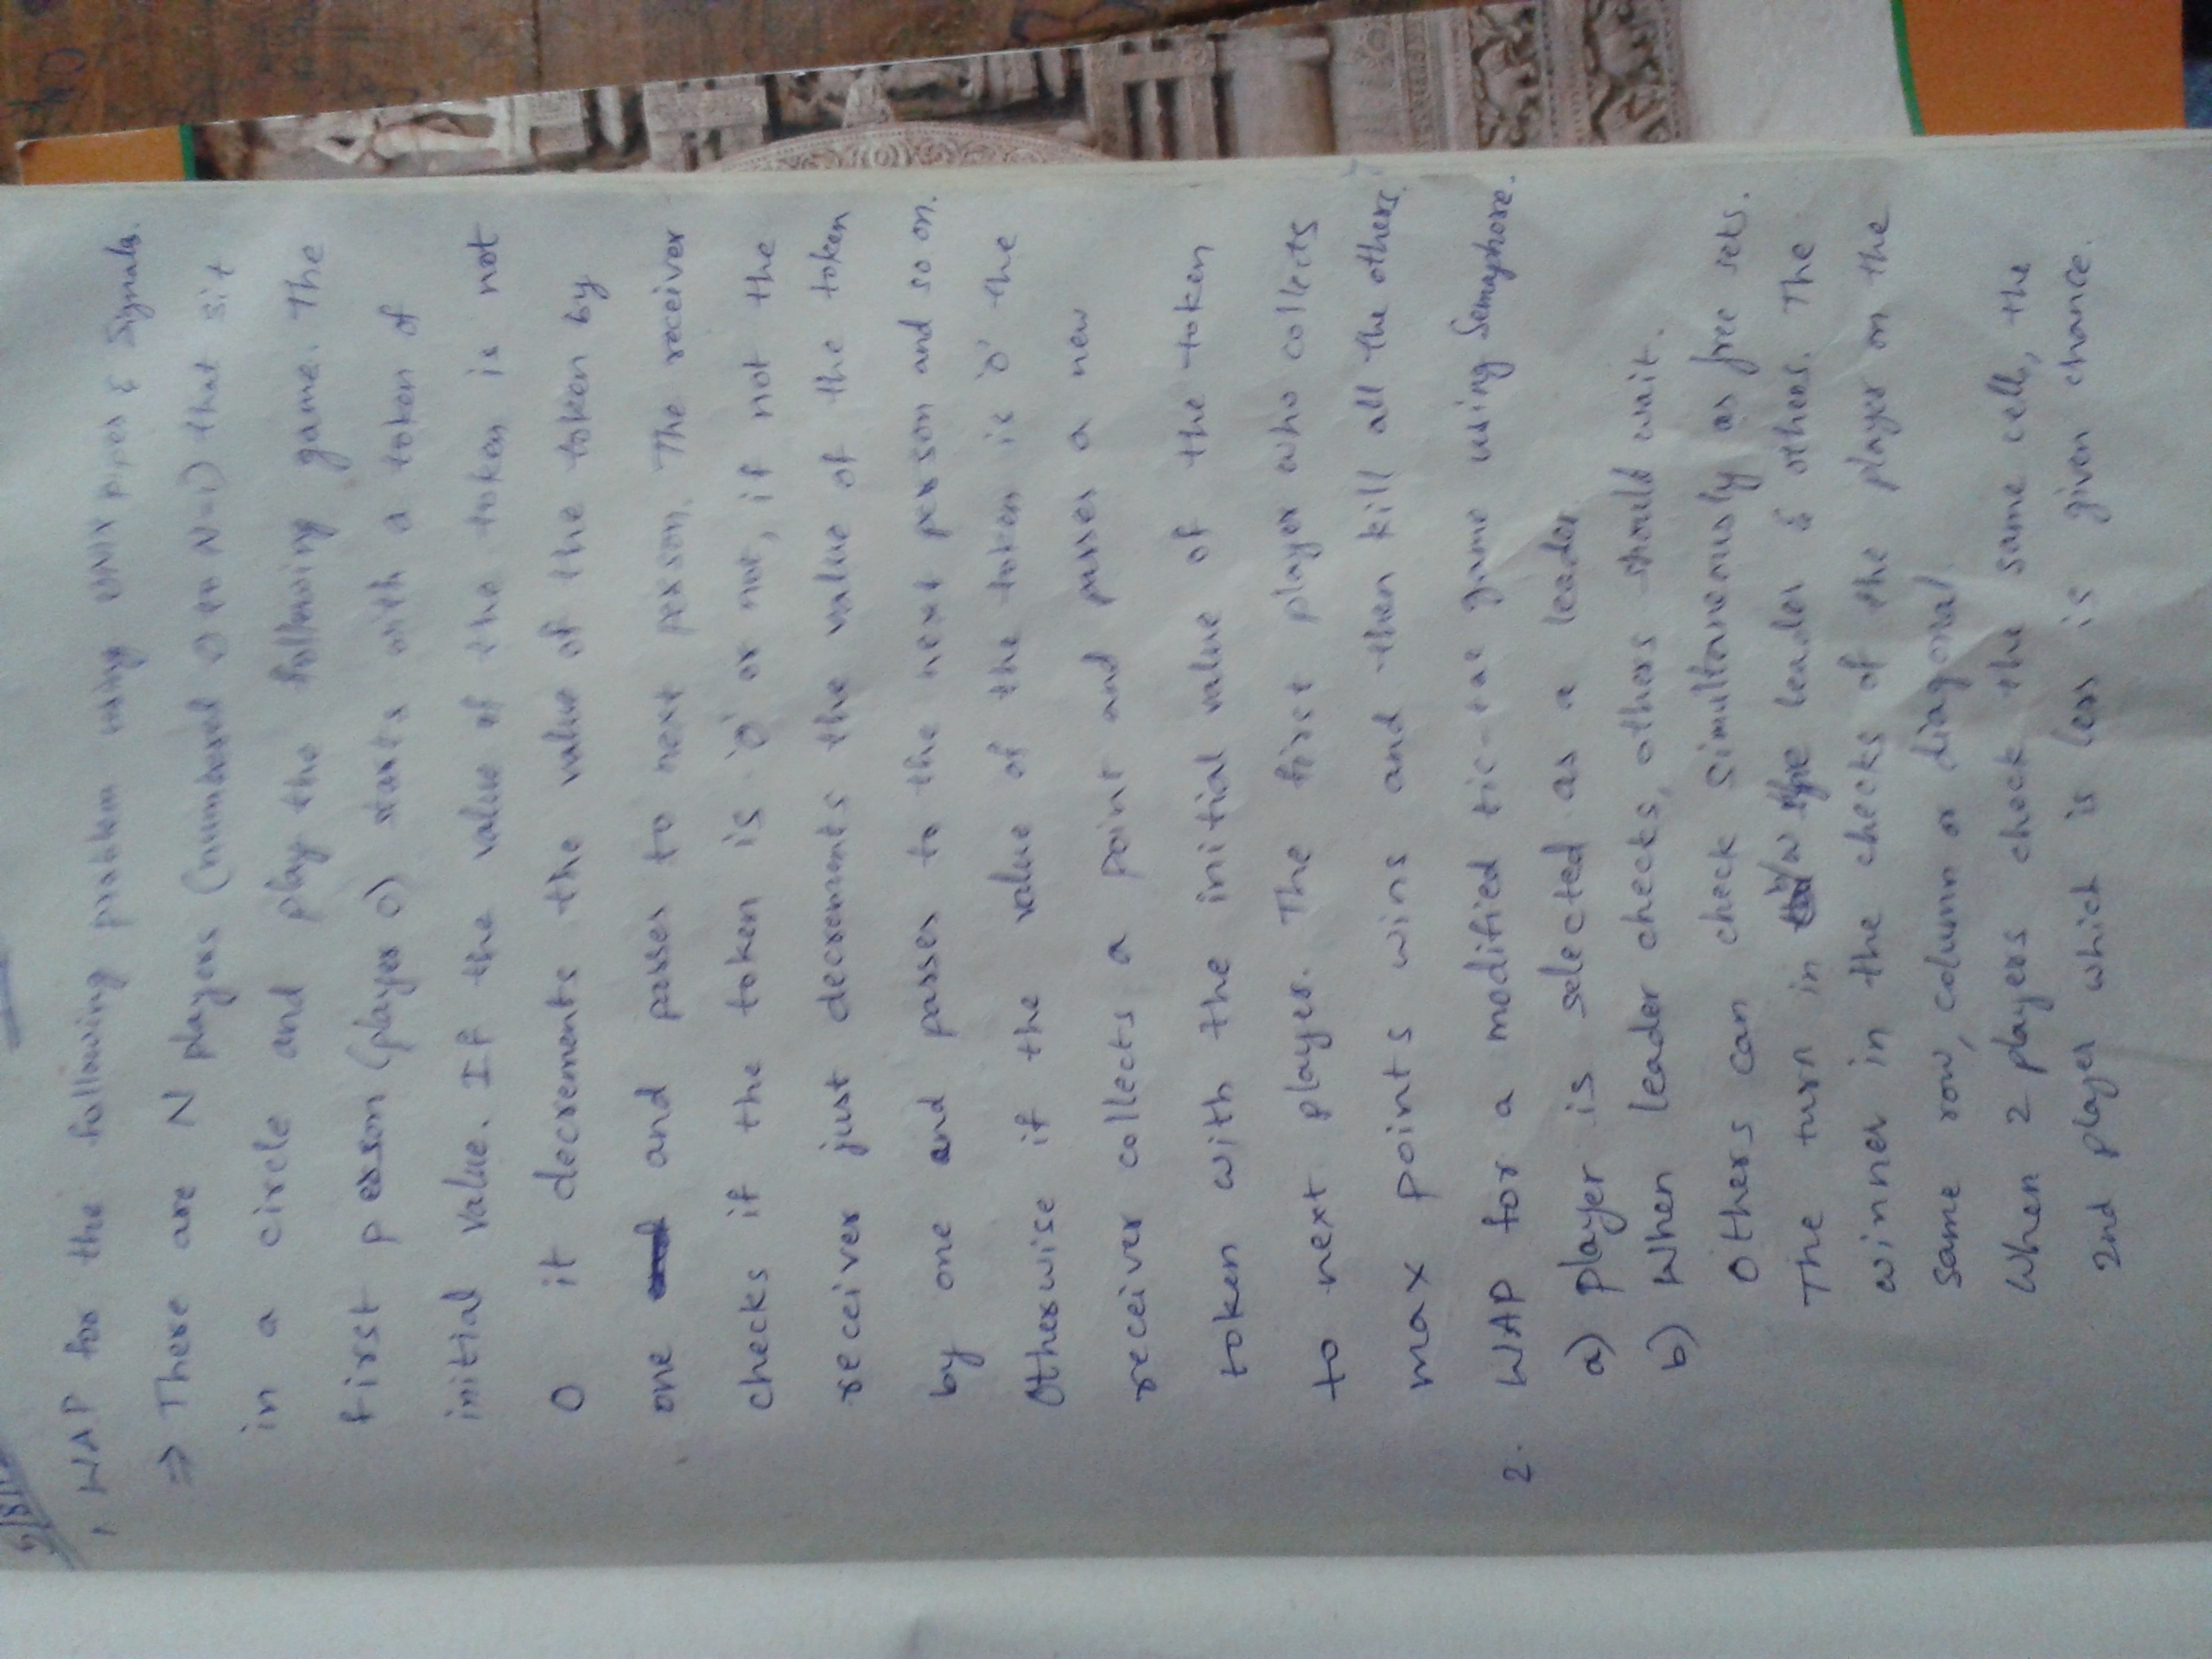 5/8/1
1. WAP for the following problem using UNIX pipes & Signals.
⇒ There are N players (numbered 0 to N-1) that sit
in a circle and play the following game. The
first person (player 0) starts with a token of
initial value. If the value of the token is not
0 it decrements the value of the token by
one and passes to next person. The receiver
checks if the token is '0' or not, if not the
receiver just decrements the value of the token
by one and passes to the next person and so on.
Otherwise if the value of the token is '0' the
receiver collects a point and passes a new
token with the initial value of the token
to next player. The first player who collects
max points wins and then kill all the others.
2. WAP for a modified tic-tac game using Semaphore.
a) player is selected as a leader
b) When leader checks, others should wait.
Others can check simultaneously as free sets.
The turn in b/w the leader & others. The
winner in the checks of the player on the
same row, column or diagonal.
When 2 players check the same cell, the
2nd player which is less is given chance.